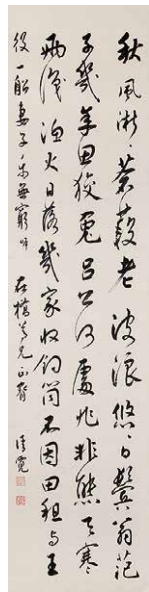 秋風淅淅蒹葭老波浪悠悠白鬢翁范
子幾年思狡兔呂公何處兆非熊天寒
兩漁火日落幾家收釣筒不因田租與王
役一船妻子樂無窮 石橋兄正